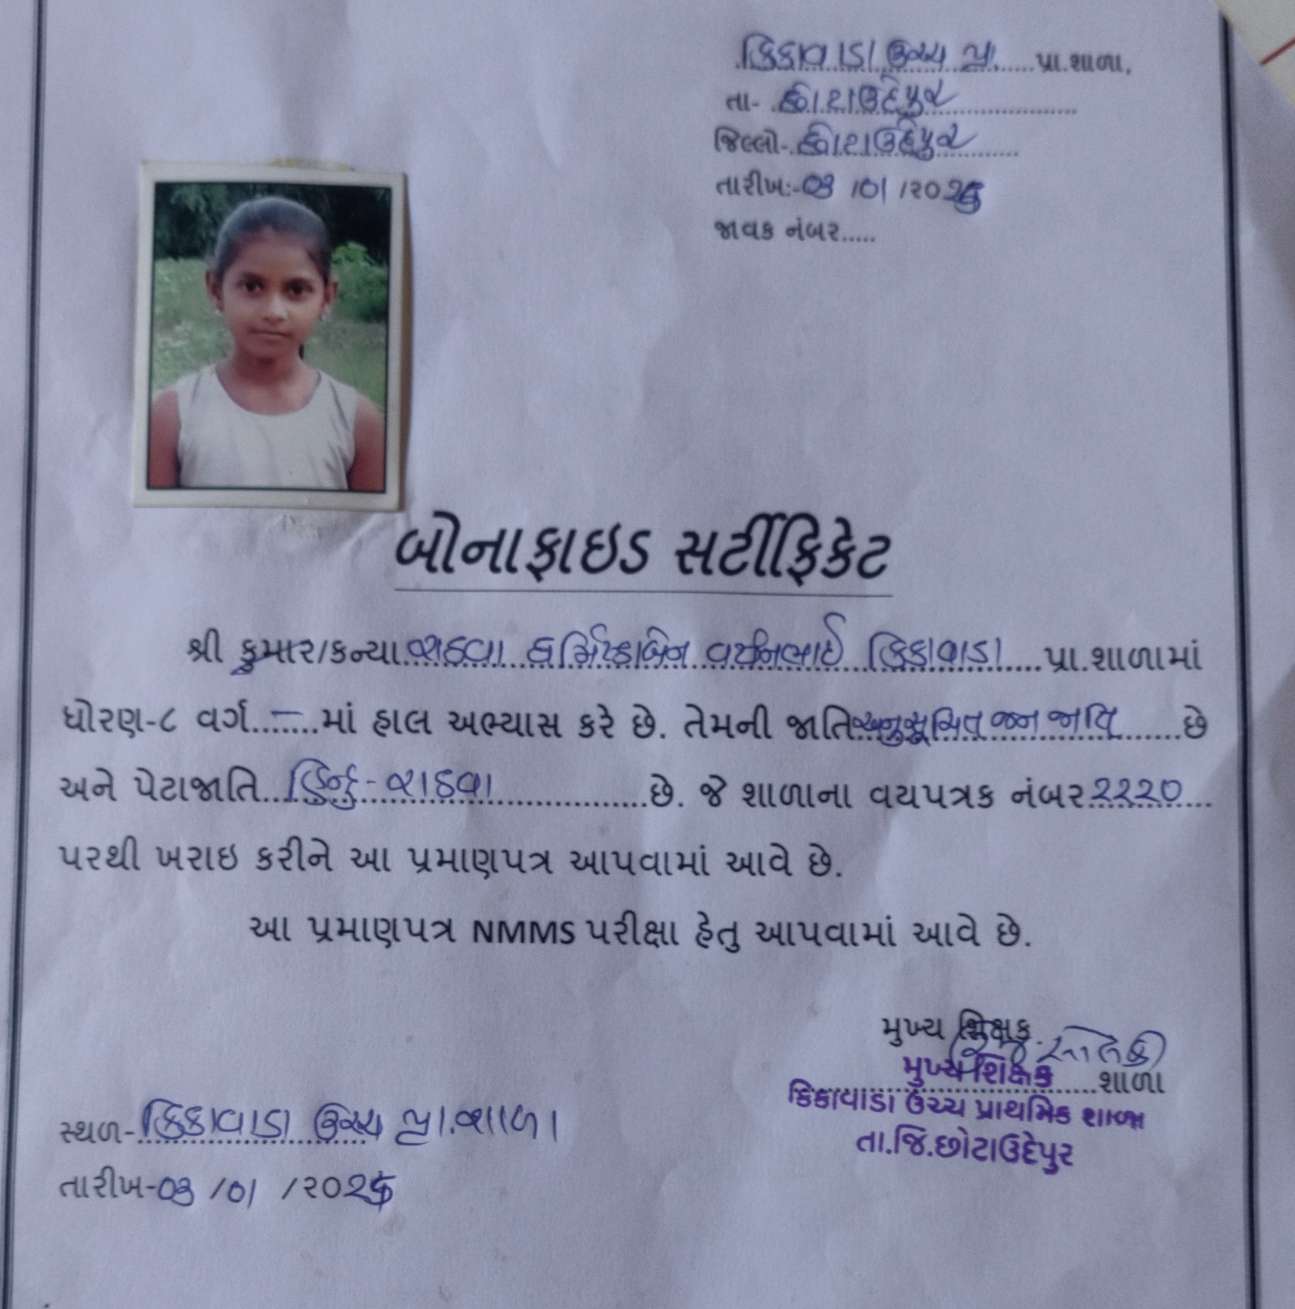 કિકાવાડા ઉચ્ચ પ્રા. પ્રા.શાળા,
તા- છોટાઉદેપુર
જિલ્લો- છોટાઉદેપુર
તારીખ:-03 /01 /૨૦૨
જાવક નંબર.....
બોનાફાઇડ સર્ટીફિકેટ
શ્રી કુમાર/કન્યા રાઠવા હર્મિષ્ઠાબેન કિકાવાડા પ્રા.શાળામાં
ધોરણ-૮ વર્ગ..—..માં હાલ અભ્યાસ કરે છે. તેમની જાતિ અનુસૂચિત જન જાતિ છે
અને પેટાજાતિ હિન્દુ-રાઠવા છે. જે શાળાના વયપત્રક નંબર ૨૨૨૦
પરથી ખરાઇ કરીને આ પ્રમાણપત્ર આપવામાં આવે છે.
આ પ્રમાણપત્ર NMMS પરીક્ષા હેતુ આપવામાં આવે છે.
મુખ્ય શિક્ષક
મુખ્ય શિક્ષક
શાળા
કિકાવાડા ઉચ્ચ પ્રાથમિક શાળા
તા.જિ.છોટાઉદેપુર
સ્થળ- કિકાવાડા ઉચ્ચ પ્રા.શાળા
તારીખ-03 /01 /૨૦૨